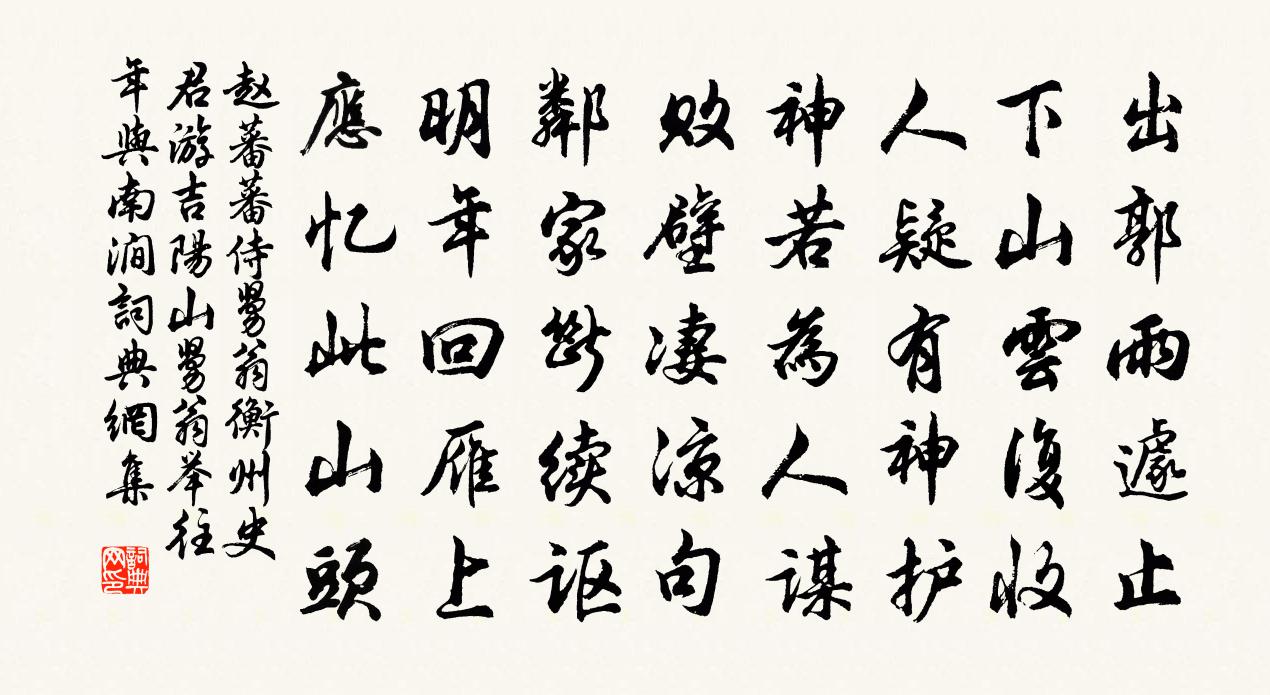 出郭雨遽止
下山雲復收
人疑有神护
神若為人谋
败壁凄凉句
鄰家断续讴
明年回雁上
應忆此山頭
赵蕃蕃侍舅翁衡州史
君游吉陽山舅翁举往
年與南澗詞典網集
詞典
网印